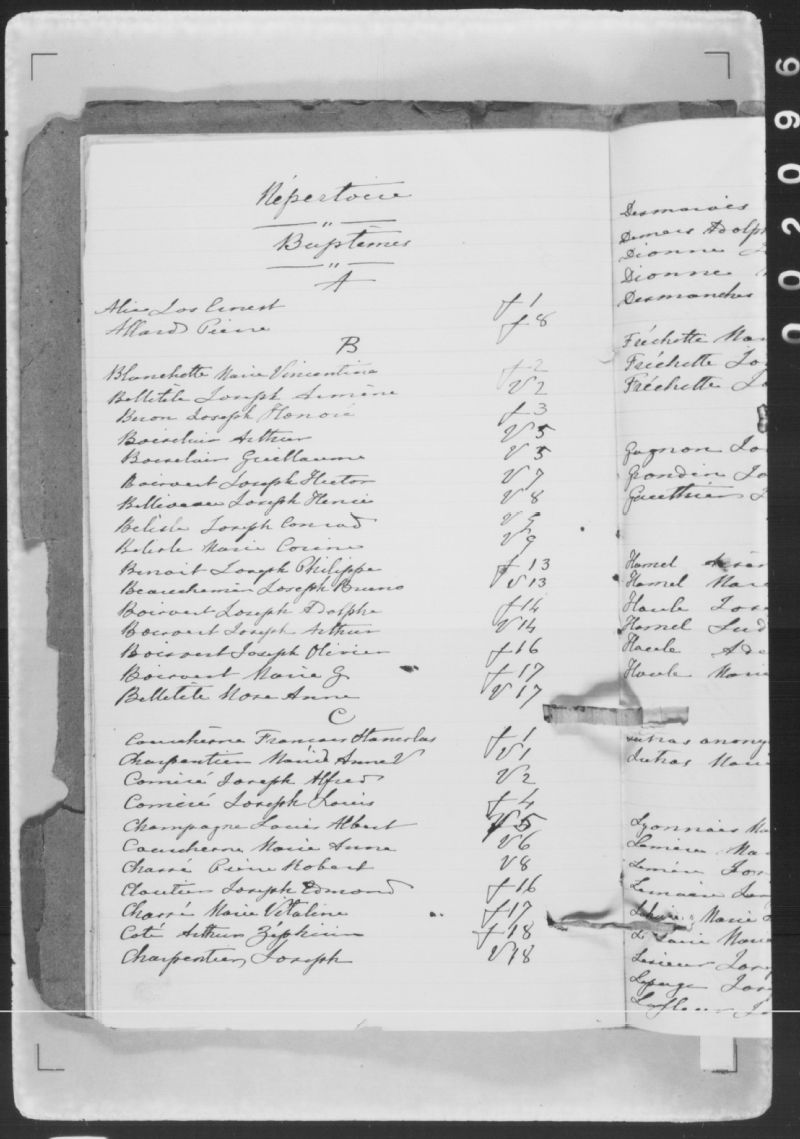 Répertoire
"
Baptêmes
"
A
Alie Jos Ernest f 1
Allard Pierre f 8
B
Blanchette Marie Vincentina f 2
Belletête Joseph Arsène V 2
Beron Joseph Honoré f 3
Boisclair Arthur V 5
Boisclair Guillaume V 5
Boisvert Joseph Hector V 7
Belliveau Joseph Henri V 8
Belisle Joseph Conrad V 9
Belisle Marie Corinne V 9
Benoit Joseph Philippe f 13
Beauchemin Joseph Bruno V 13
Boisvert Joseph Adolphe f 14
Boisvert Joseph Arthur V 14
Boisvert Joseph Olivier f 16
Boisvert Marie G f 17
Belletête Rose Anne V 17
C
Couchène Francois Stanislas f 1
Charpentier Marie Anne V V 1
Comiré Joseph Alfred V 2
Comiré Joseph Louis f 4
Champagne Louis Albert V 5
Couchene Marie Anne V 6
Charré Pierre Robert V 8
Cloutier Joseph Edmond f 16
Charré Marie Vitaline f 17
Coté Arthur Zéphirin f 18
Charpentier Joseph V 18
Desmarais
Demers Adolph
Dionne
Dionne
Desmanches
Fréchette Mar
Fréchette Jo
Fréchette Jo
Gagnon Jo
Grondin Jo
Gauthier J
Hamel
Hamel Mar
Houle Jos
Hamel Lud
Houle Ade
Houle Marie
anony
Dutras Marie
Lyonnais Ma
Lemieux Ma
Lemire Jos
Lemaire Jos
Marie
Marie
Lesieur Jos
Lepage Jos
Lafleur Jo
002096